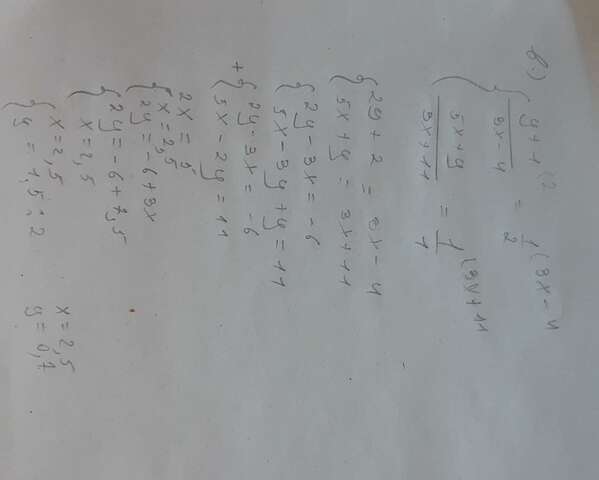 b.) { y+1 (2 / 3x-4 = 1/2 (3x-4
5x+y / 3x+11 = 1/1 (3x+11
{ 2y+2 = 3x-4
5x+y = 3x+11
{ 2y-3x=-6
5x-3y+y=11
+ { 2y-3x=-6
5x-2y=11
2x=5
{ x=2,5
2y=-6+3x
{ 2y=-6+7,5
x=2,5
{ x=2,5 x=2,5
y=1,5:2 y=0,7